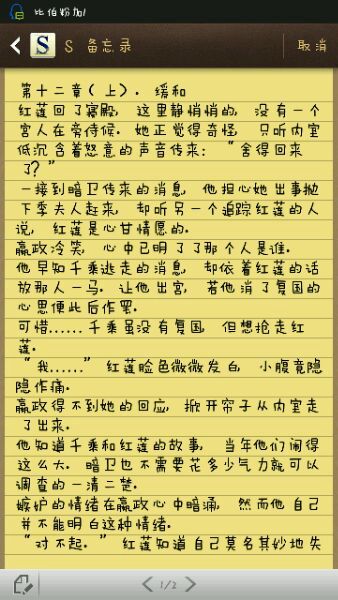 比伯粉加!
S 备忘录
取消
第十二章(上). 缓和
红莲回了寝殿, 这里静悄悄的, 没有一个
宫人在旁侍候. 她正觉得奇怪, 只听内室
低沉含着怒意的声音传来: “舍得回来
了? ”
一接到暗卫传来的消息, 他担心她出事抛
下季夫人赶来, 却听另一个追踪红莲的人
说, 红莲是心甘情愿的.
嬴政冷笑, 心中已明了了那个人是谁.
他早知千乘逃走的消息, 却依着红莲的话
放那人一马. 让他出宫, 若他消了复国的
心思便此后作罢.
可惜...... 千乘虽没有复国, 但想抢走红
莲.
“我......” 红莲脸色微微发白, 小腹竟隐
隐作痛.
嬴政得不到她的回应, 掀开帘子从内室走
了出来.
他知道千乘和红莲的故事, 当年他们闹得
这么大. 暗卫也不需要花多少气力就可以
调查的一清二楚.
嫉妒的情绪在嬴政心中暗涌, 然而他自己
并不能明白这种情绪.
“对不起. ” 红莲知道自己莫名其妙地失
1/2